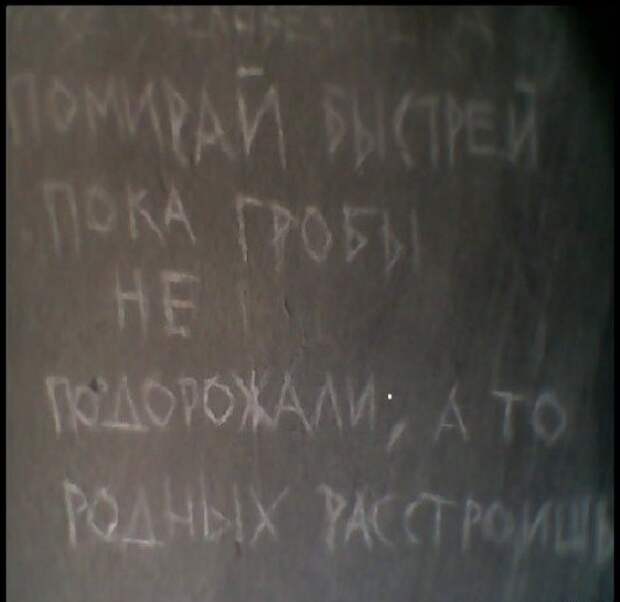 ПОМИРАЙ БЫСТРЕЙ
ПОКА ГРОБЫ
НЕ
ПОДОРОЖАЛИ, А ТО
РОДНЫХ РАССТРОИШЬ